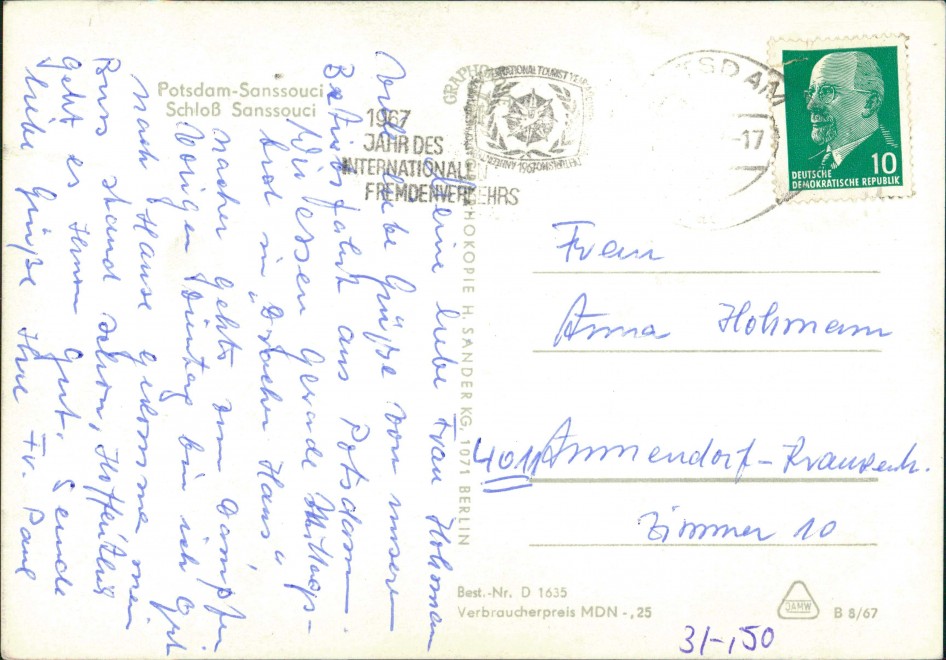 Potsdam-Sanssouci
Schloß Sanssouci
1967
JAHR DES
INTERNATIONALEN
FREMDENVERKEHRS
INTERNATIONAL TOURIST YEAR
POTSDAM
-17
10
DEUTSCHE
DEMOKRATISCHE REPUBLIK
Meine liebe Frau Hohmann
Viele liebe Grüße von unserer
Betriebsfahrt aus Potsdam.
Wir essen gerade Mittags-
brod im "Drachen Haus"
nacher gehts zum Dampfer
Vorigen Dienstag bin ich gut
nach Hause gekommen mein
Buss stand schon, Hoffentlich
geht es Ihnen gut. Sende
liebe Grüße Ihre Fr. Paul
Frau
Anna Hohmann
4011 Ammendorf-Krankenh.
Zimmer 10
H. SANDER KG, 1071 BERLIN
Best.-Nr. D 1635
Verbraucherpreis MDN -,25
JAMW
B 8/67
31-,150